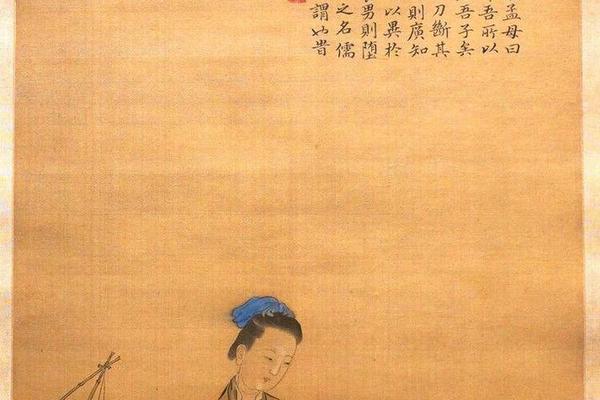 孟母曰
吾所以
吾子矣
刀斷其
則廣知
以異於
男則墮
之名儒
謂也